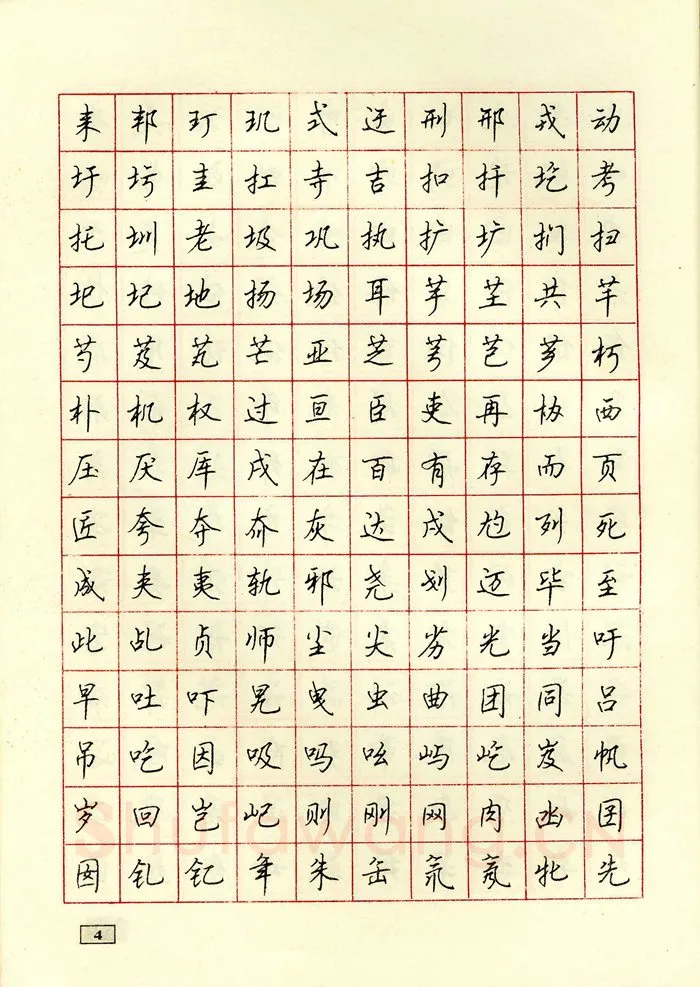 耒 邦 玎 玑 式 迂 刑 邢 戎 动
圩 圬 圭 扛 寺 吉 扣 扦 圪 考
托 圳 老 圾 巩 执 扩 圹 扪 扫
圯 圮 地 扬 场 耳 芋 芏 共 芊
芍 芨 芄 芒 亚 芝 芎 芑 芗 朽
朴 机 权 过 亘 臣 吏 再 协 西
压 厌 厍 戌 在 百 有 存 而 页
匠 夸 夺 夼 灰 达 戍 尥 列 死
成 夹 夷 轨 邪 尧 划 迈 毕 至
此 乩 贞 师 尘 尖 劣 光 当 吁
早 吐 吓 晃 曳 虫 曲 团 同 吕
吊 吃 因 吸 吗 吆 屿 屹 岌 帆
岁 回 岂 屺 则 刚 网 肉 凼 囝
囡 钆 钇 年 朱 缶 氘 氖 牝 先
Shufawang.cn
4